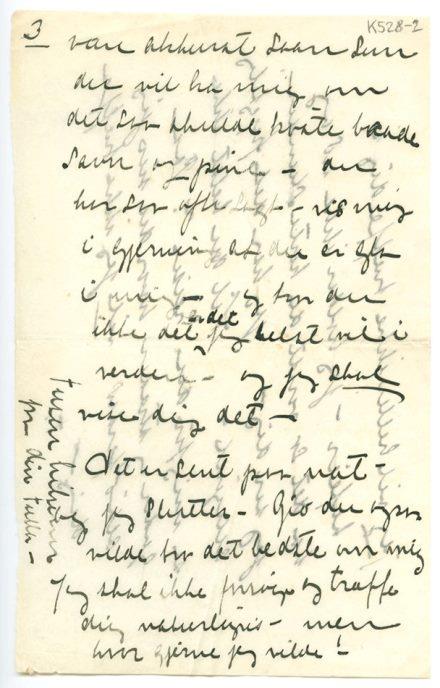 3
K528-2
være akkurat saan som
du vil ha mig, om
det saa skulde koste baade
savn og pine – du
har saa ofte sagt – vis mig
i gjerning at du er
i mig – og tror du
ikke at det jeg helst vil i
verden – og jeg skal
vise dig det –
Det er sent paa nat –
og jeg slutter – Gid du ogsaa
vilde tro det bedste om mig
Jeg skal ikke prøve og træffe
dig naturligvis – men
hvor gjerne jeg vilde! –
paa din Tulla –